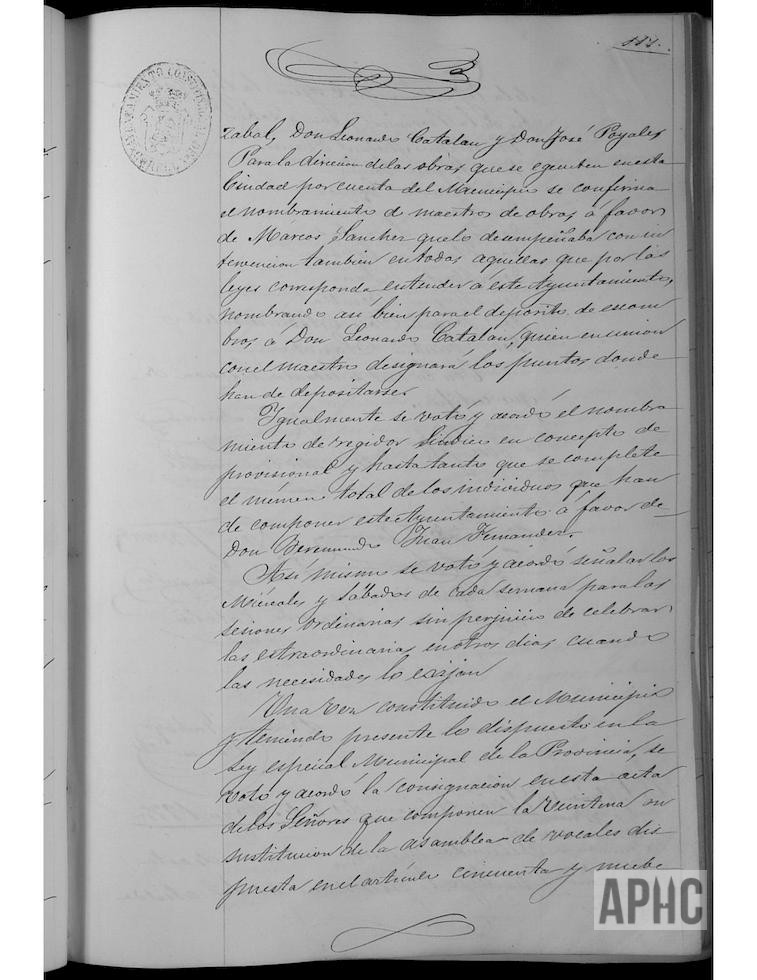 117.
AYUNTAMIENTO CONSTITUCIONAL
zabal, Don Leonardo Catalan y Don José Poyales
Para la direccion de las obras que se egecuten en esta
Ciudad por cuenta del Municipio se confirma
el nombramiento de maestro de obras á favor
de Márcos Sanchez que lo desempeñaba con in
tervencion tambien en todas aquellas que por las
leyes corresponda entender á este Ayuntamiento,
nombrando así bien para el deposito de escom
bros á Don Leonardo Catalan, quien en union
con el maestro designará los puntos donde
han de depositarse.
Igualmente se votó y acordó el nombra
miento de regidor Síndico en concepto de
provisional y hasta tanto que se complete
el número total de los individuos que han
de componer este Ayuntamiento á favor de
Don Beremundo Juan Fernandez.
Así mismo se votó y acordó señalar los
Miércoles y Sábados de cada semana para las
sesiones ordinarias sin perjuicio de celebrar
las estraordinarias en otros dias cuando
las necesidades lo exijan
Una vez constituido el Municipio
y teniendo presente lo dispuesto en la
Ley especial Municipal de la Provincia, se
votó y acordó la consignacion en esta acta
de los Señores que componen la Veintena en
sustitucion de la asamblea de vocales dis-
puesta en el artículo cincuenta y nuebe
APHC